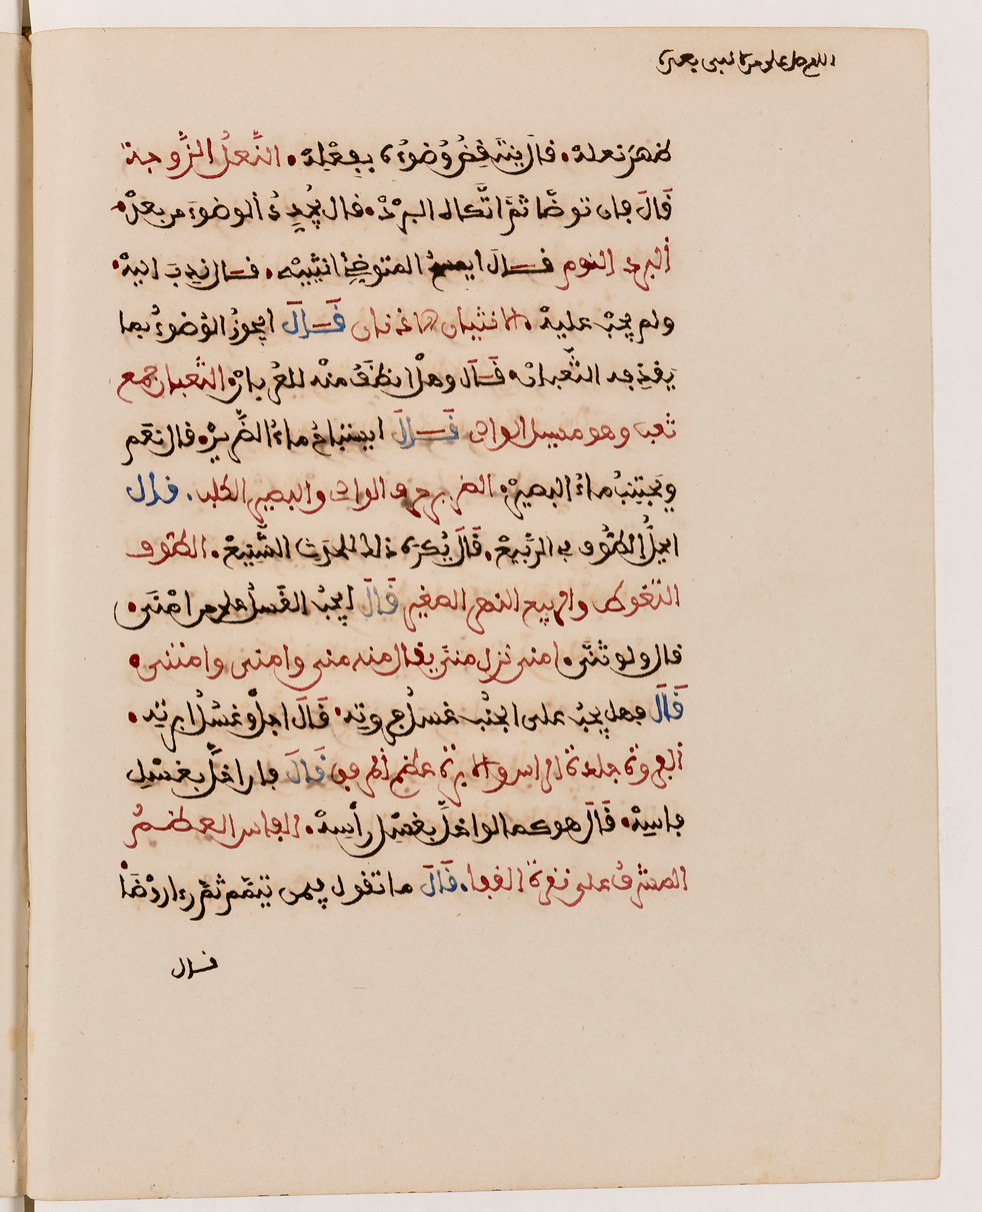 اللهم صل على من لا نبي بعده
ظهر نعله. قال ينتقض وُضوءُه بفعْلِهْ. النَّعلُ الزَّوجةْ
قَالَ فان توضّا ثمّ اتَّكاه البرْدْ. قال يُجدِدُ ألوضوءَ من بعدْ.
ألبرد النوم قَالَ ايمسحُ المتوضِئُ انثييْه. قال نُدِبَ اليهْ.
ولم يجبْ عليهْ. الانثيان الاذنان قَالَ ايجوزُ الوُضوءُ بما
يقذِفه الثُّعبانْ. قَالَ وهلْ انظفُ منه للعُربانْ. الثُّعبان جمع
ثعب وهو مسيل الوادي قَالَ ايستباحُ ماءُ الضَّرِيرْ. قال نعَم
ويُجتنبُ ماءُ البصيرْ. الضرير حرف الوادي والبصير الكلب. قال
ايحلُّ الطَّوْف في الرَّبيعْ. قَالَ يُكرَه ذلك للحدث الشَّنِيعْ. الطوف
التغوط والربيع النهر الصغير قَالَ ايجبُ الغَسلُ على من امْنَى.
قال ولو ثنَّى. امنى نزل منى يقال منه منى وامنى وامتنى.
قَالَ فهل يجبُ على الجنُب غسلُ فروتِه. قَالَ اجلْ وغسْلُ ابرتِه.
ألفروة جلدة الراس والابرة عظم ألمرفق قَالَ فان اخلَّ بغسْلِ
فاسِهْ. قَالَ هو كما لو اخلَّ بغسْلِ رأْسِهْ. الفاس العظمُ
المشرفُ على نقرة القفا. قَالَ ما تقول فيمن تيمّم ثمّ رءا روْضًا
قال